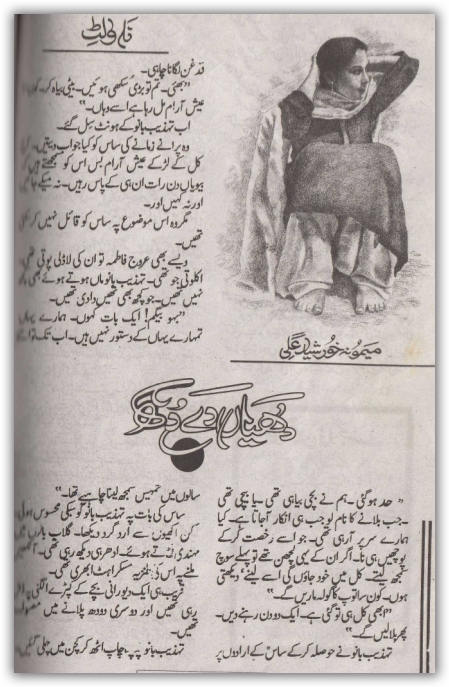 ناولٹ
میمونہ خورشید علی
دھیاں دے دکھ
"حد ہو گئی۔ ہم نے بچی بیاہی تھی۔ یا بیچی تھی
۔ جب بلانے کا نام لو جب ہی انکار آجاتا ہے۔ کیا
ہمارے سر پر آرہی تھی۔ جو اسے رخصت کر کے
پوچھیں ہی نا۔ اگر ان کے یہی لچھن تھے تو پہلے سوچ
سمجھ لیتے۔ کل میں خود جاؤں گی اسے لینے، دیکھتی
ہوں۔ کون سا توپ کا گولہ ماریں گے۔"
"ابھی کل ہی تو گئی ہے۔ ایک دو دن رہنے دیں۔
پھر بلا لیں گے۔"
تہذیب بانو نے حوصلہ کر کے ساس کے ارادوں پر
قدغن لگانا چاہی۔
"بھئی۔ تم تو بڑی سکھی ہوئیں۔ بیٹی بیاہ کر۔
عیش آرام مل رہا ہے اسے وہاں۔"
اب تہذیب بانو کے ہونٹ سل گئے۔
وہ پرانے زمانے کی ساس کو کیا جواب دیتیں۔
کل کے لڑکے عیش آرام بس اس کو سمجھتے ہیں
بیویاں دن رات ان ہی کے پاس رہیں۔ نہ میکے جائیں
اور نہ کہیں اور۔
مگر وہ اس موضوع پہ ساس کو قائل نہیں کر
تھیں۔
ویسے بھی عروج فاطمہ تو ان کی لاڈلی پوتی تھی۔
اکلوتی جو تھی۔ تہذیب بانو ماں ہوتے ہوئے بھی
نہیں تھیں۔ جو کچھ بھی تھیں دادی تھیں۔
"بہو بیگم! ایک بات کہوں۔ ہمارے یہاں
تمہارے یہاں کے دستور نہیں ہیں۔ اب تک تو
سالوں میں تمہیں سمجھ لینا چاہیے تھا۔"
ساس کی بات پہ تہذیب بانو کو سبکی محسوس ہوئی۔
کن اکھیوں سے ارد گرد دیکھا۔ گلاب بالوں میں
مہندی لگاتے ہوئے۔ ادھر ہی دیکھ رہی تھی۔
ملنے پہ اس کی طنزیہ مسکراہٹ ابھری تھی۔
قریب ہی ایک دیورانی بچے کے کپڑے الگنی پہ ڈال
رہی تھیں اور دوسری دودھ پلانے میں مصروف
تھیں۔
تہذیب بانو چپ چاپ اٹھ کر کچن میں چلی گئیں